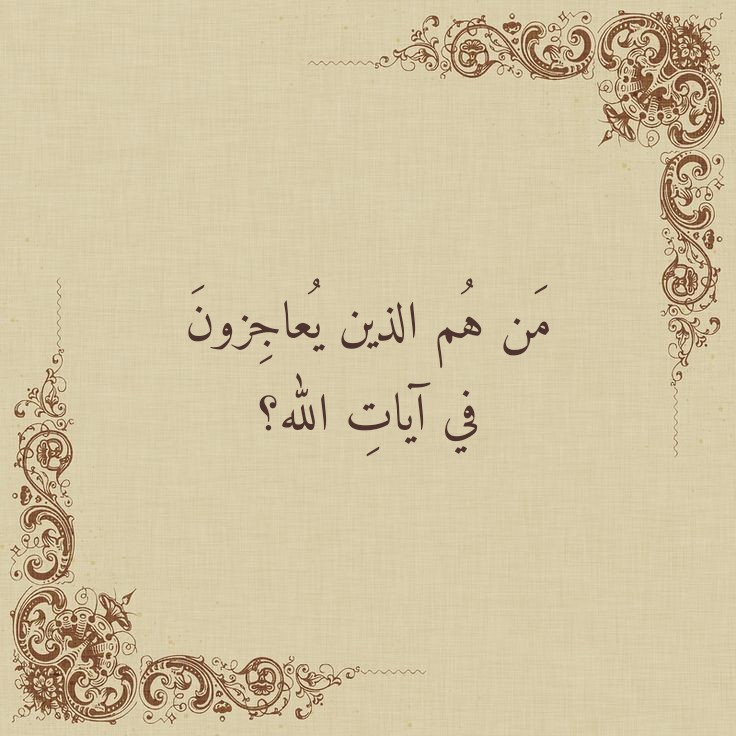 مَن هُم الذين يُعاجِزونَ
في آياتِ الله؟